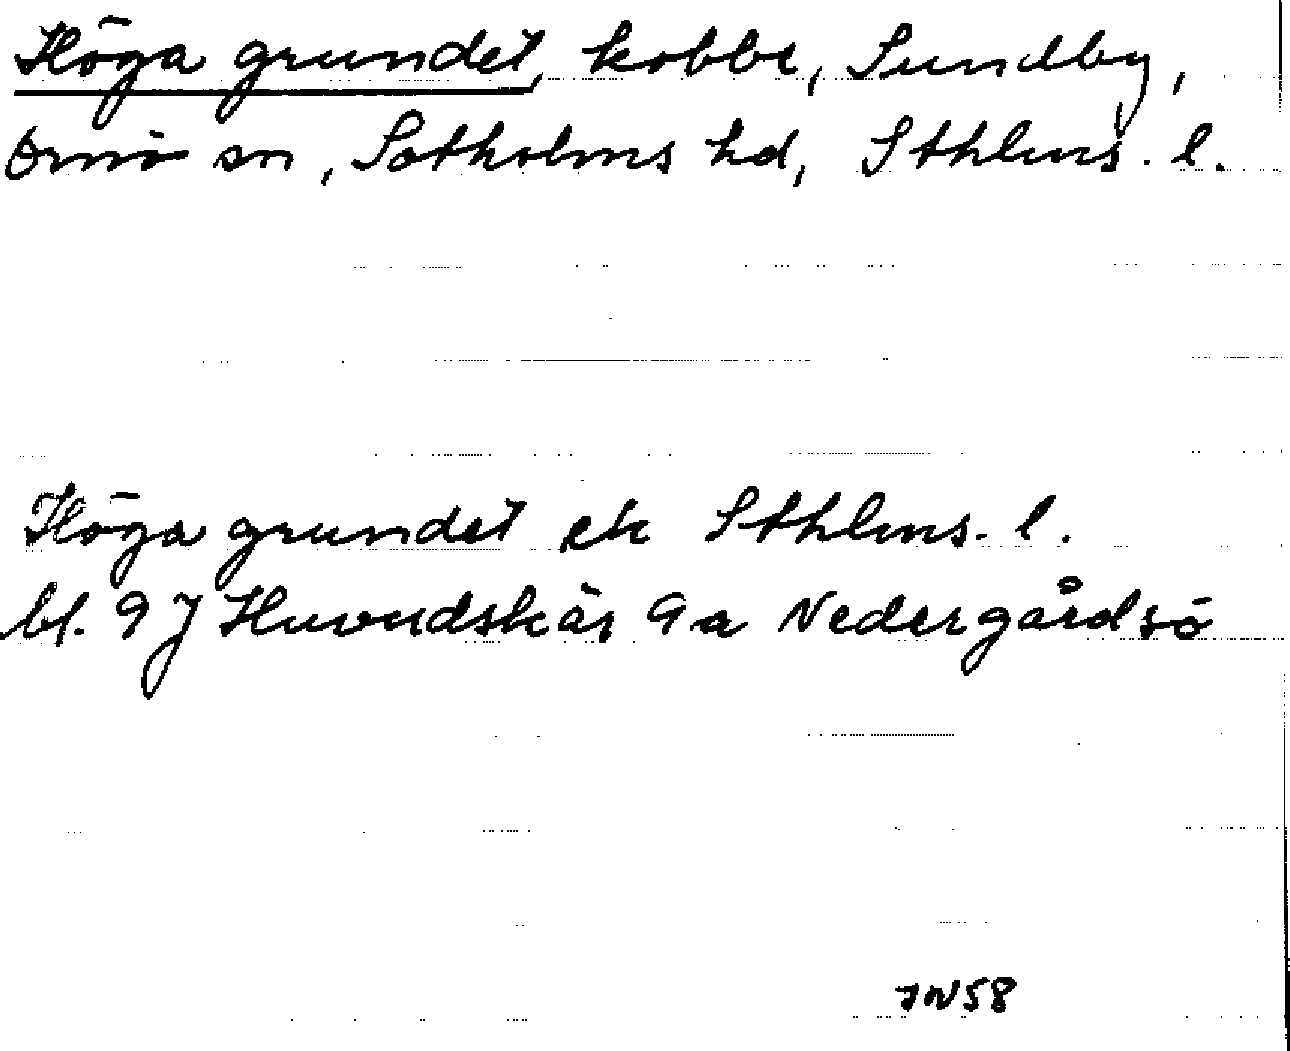 Höga grundet, kobbe, Sundby,
Ornö sn, Sotholms hd, Sthlms. l.
Höga grundet ek Sthlms. l.
bl. 9 J Huvudskär 9a Nedergårdsö
JN58